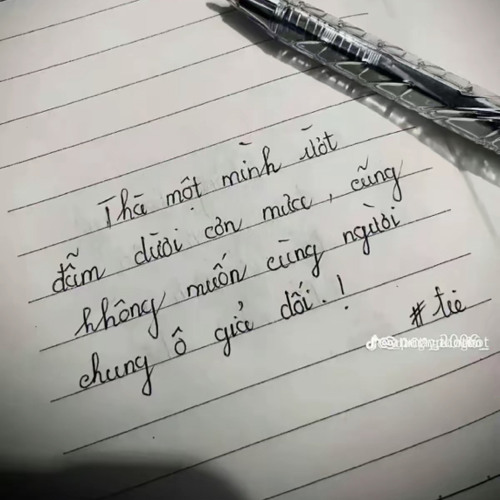 Thà một mình ướt
đẫm dưới cơn mưa, cũng
không muốn cùng người
chung ô giả dối.!
#tiẻ